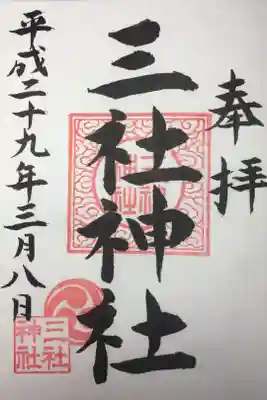 奉拝
三社神社
三社
神社
平成二十九年三月八日
三社
神社